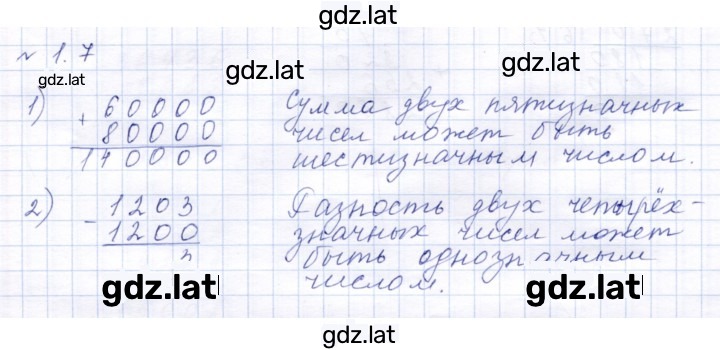 gdz.lat
№ 1.7
gdz.lat
gdz.lat
gdz.lat
1) + 60000 Сумма двух пятизначных
80000 чисел может быть
140000 шестизначным числом.
2) - 1203 Разность двух четырёх-
1200 значных чисел может
быть однозначным
числом.
gdz.lat
gdz.lat
gdz.lat